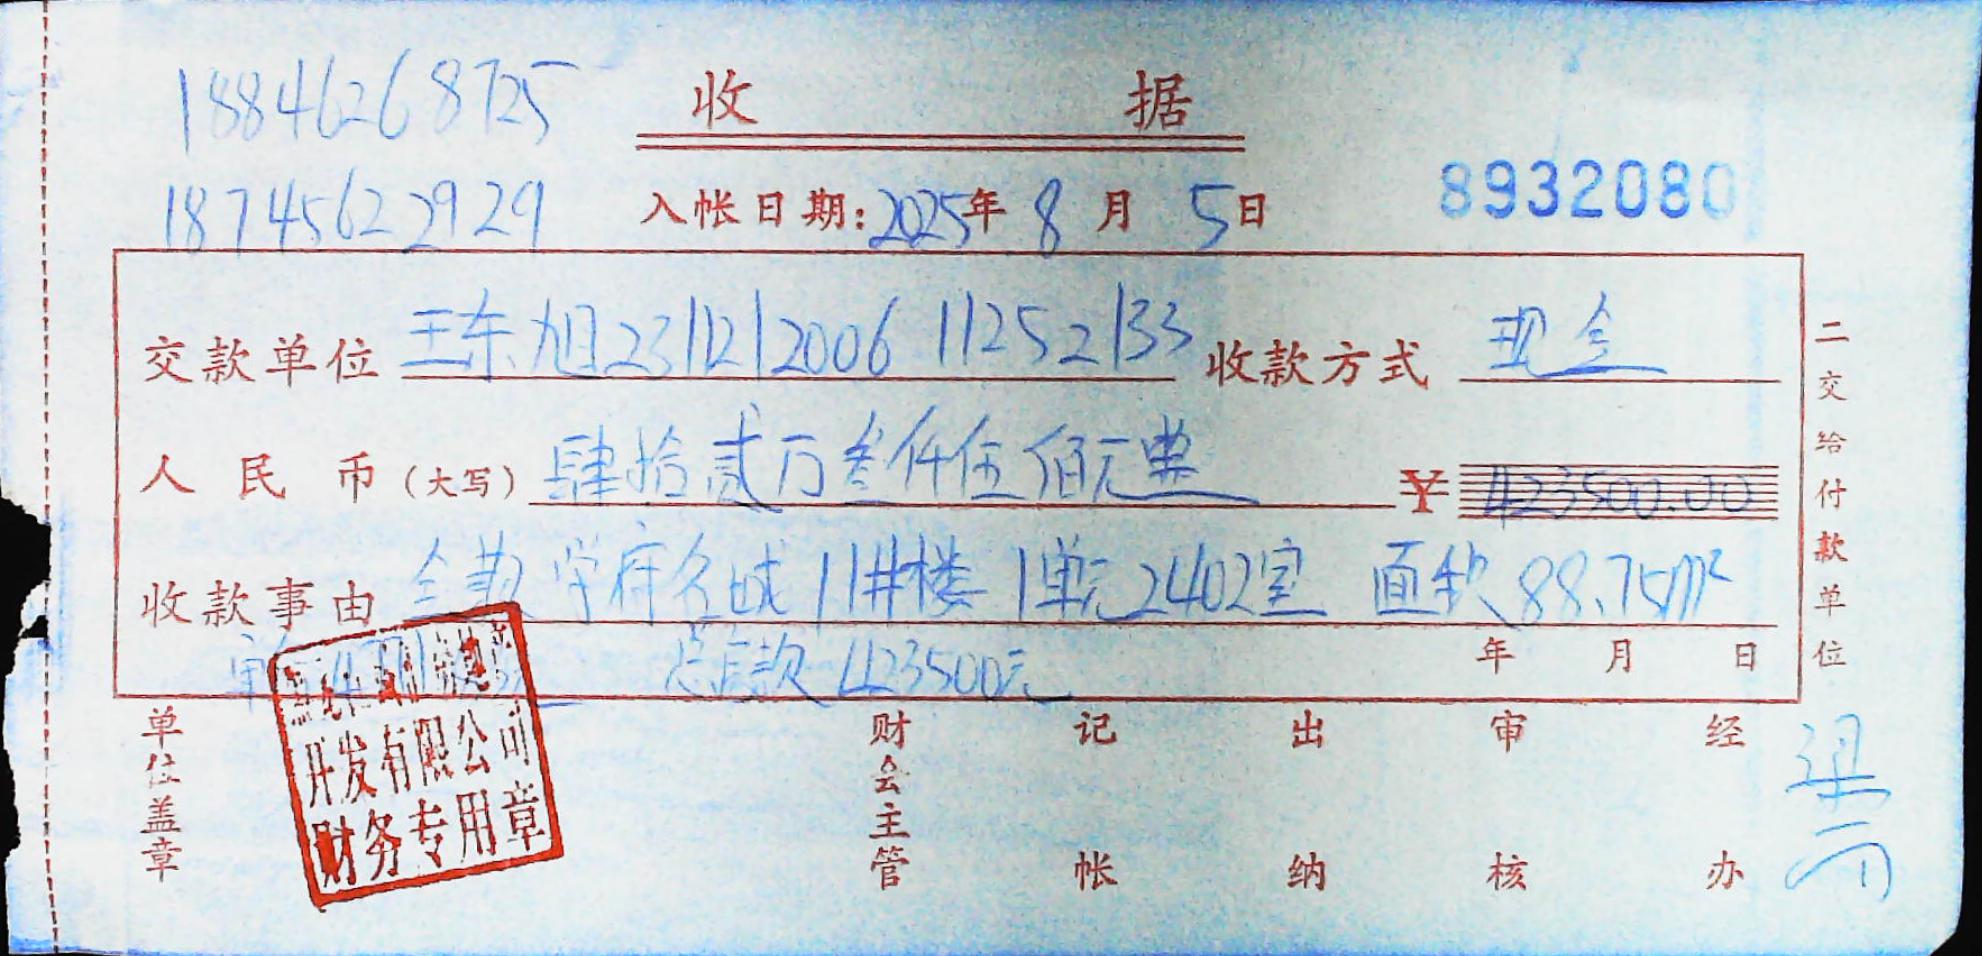 18846268725
收 据
18745622929
入帐日期:2025年8月5日
8932080
交款单位 王东旭231121200611252133 收款方式 现金
人民币(大写) 肆拾贰万叁仟伍佰元整 ¥ 423500.00
收款事由 全款 学府名城 11#楼 1单元2402室 面积 88.75m²
总房款 423500元
年 月 日
二交给付款单位
单位盖章
财会主管 记帐 出纳 审核 经办
开发有限公司
财务专用章